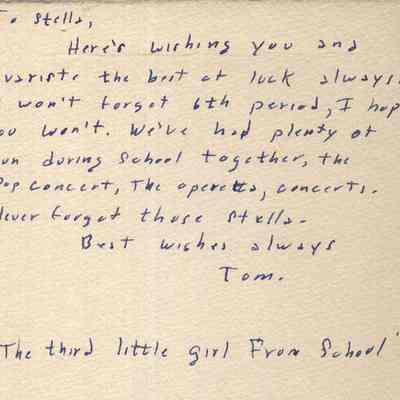 To Stella,
Here's wishing you and
variste the best of luck always.
won't forget 6th period, I hop
ou won't. We've had plenty of
un during School together, the
op concert, The operetta, concerts.
lever forget those Stella.
Best wishes always
Tom.
"The third little girl From School"